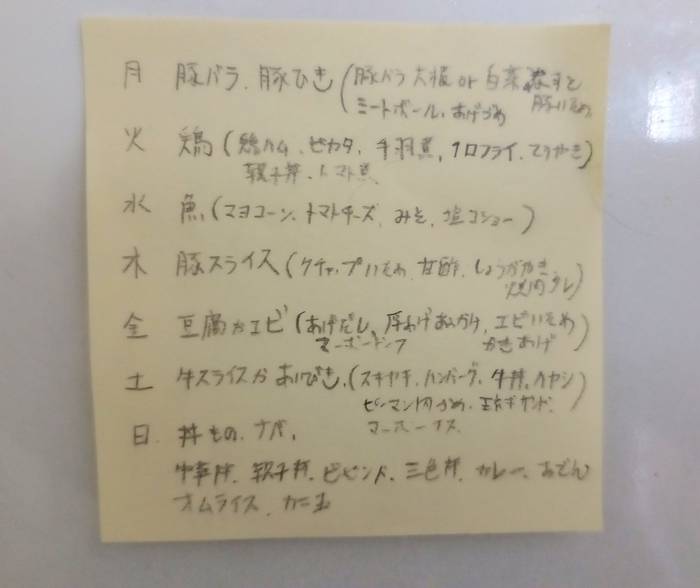 月 豚バラ、豚ひき(豚バラ大根 or 白菜
ミートボール、あげづめ
火 鶏(鶏ハム、ピカタ、手羽煮、1口フライ、てりやき)
親子丼、トマト煮
水 魚(マヨコーン、トマトチーズ、みそ、塩コショー)
木 豚スライス(ケチャップいため、甘酢、しょうがやき、
焼肉タレ)
金 豆腐かエビ(あげだし、厚あげあんかけ、エビいため)
マーボードーフ かきあげ
土 牛スライスかあいびき、(スキヤキ、ハンバーグ、牛丼、ハヤシ)
ピーマン肉づめ、玉ネギサンド、
マーボーナス
日 丼もの、ナベ、
中華丼、親子丼、ビビンバ、三色丼、カレー、おでん
オムライス、カニ玉